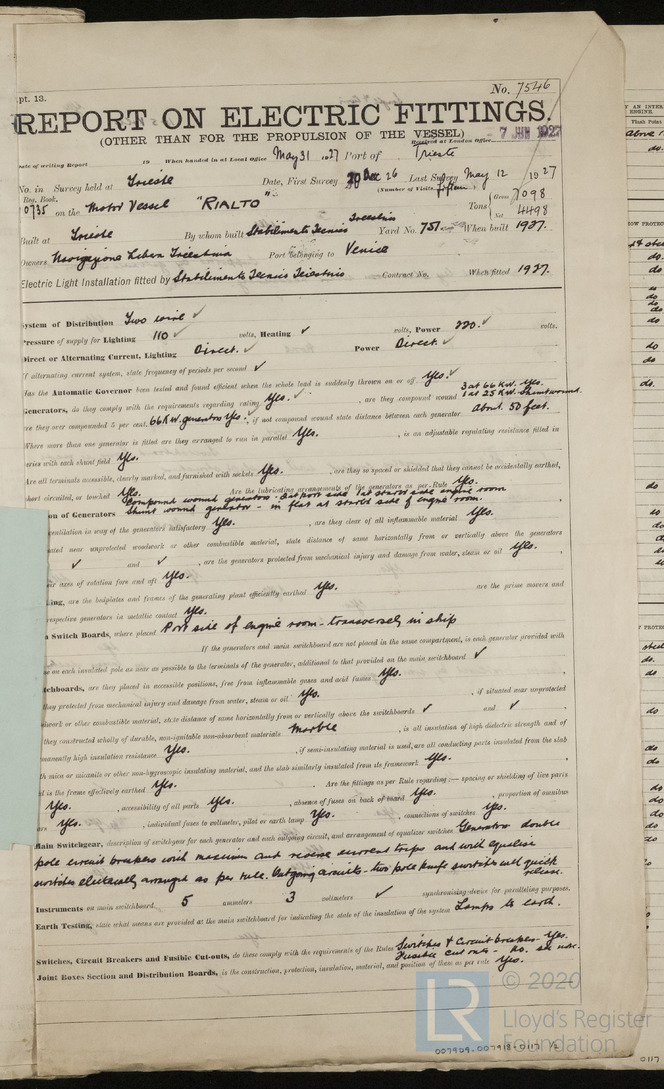 pt. 13.
No. 7546
REPORT ON ELECTRIC FITTINGS.
(OTHER THAN FOR THE PROPULSION OF THE VESSEL)
Received at London Office 7 JUN 1927
Date of writing Report 19 When handed in at Local Office May 31 1927 Port of Trieste
No. in Survey held at Trieste Date, First Survey Dec 26 Last Survey May 12 1927
Reg. Book. (Number of Visits, fifteen)
0735 on the Motor Vessel "RIALTO" Tons { Gross 7098
Net 4498
Built at Trieste By whom built Stabilimento Tecnico Triestino Yard No. 751 When built 1927.
Owners Navigazione Libera Triestina Port belonging to Venice
Electric Light Installation fitted by Stabilimento Tecnico Triestino Contract No. When fitted 1927.
System of Distribution Two wire ✓
Pressure of supply for Lighting 110 ✓ volts, Heating ✓ volts, Power 220. ✓ volts.
Direct or Alternating Current, Lighting Direct. ✓ Power Direct. ✓
If alternating current system, state frequency of periods per second ✓
Has the Automatic Governor been tested and found efficient when the whole load is suddenly thrown on or off Yes. ✓
Generators, do they comply with the requirements regarding rating Yes. ✓ , are they compound wound 3 at 66 KW. Yes. 1 at 25 KW. Shunt wound.
are they over compounded 5 per cent. 66 KW. generators Yes ✓ , if not compound wound state distance between each generator about 50 feet.
Where more than one generator is fitted are they arranged to run in parallel Yes. , is an adjustable regulating resistance fitted in
series with each shunt field Yes.
Are all terminals accessible, clearly marked, and furnished with sockets Yes. , are they so spaced or shielded that they cannot be accidentally earthed,
short circuited, or touched Yes. Are the lubricating arrangements of the generators as per Rule Yes.
Compound wound generators - 2 at port side 1 at starbd side engine room
on of Generators Shunt wound generator - in flat at starbd side of engine room.
ventilation in way of the generators satisfactory Yes. , are they clear of all inflammable material Yes.
ated near unprotected woodwork or other combustible material, state distance of same horizontally from or vertically above the generators
✓ and ✓ , are the generators protected from mechanical injury and damage from water, steam or oil Yes.
eir axes of rotation fore and aft Yes.
ing, are the bedplates and frames of the generating plant efficiently earthed Yes. are the prime movers and
respective generators in metallic contact Yes.
n Switch Boards, where placed Port side of engine room - transversely in ship
If the generators and main switchboard are not placed in the same compartment, is each generator provided with
se on each insulated pole as near as possible to the terminals of the generator, additional to that provided on the main switchboard ✓
tchboards, are they placed in accessible positions, free from inflammable gases and acid fumes Yes.
they protected from mechanical injury and damage from water, steam or oil Yes. , if situated near unprotected
odwork or other combustible material, state distance of same horizontally from or vertically above the switchboards ✓ and ✓
they constructed wholly of durable, non-ignitable non-absorbent materials Marble , is all insulation of high dielectric strength and of
manently high insulation resistance Yes. , if semi-insulating material is used, are all conducting parts insulated from the slab
th mica or micanite or other non-hygroscopic insulating material, and the slab similarly insulated from its framework Yes.
d is the frame effectively earthed Yes. Are the fittings as per Rule regarding:— spacing or shielding of live parts
Yes. , accessibility of all parts Yes. , absence of fuses on back of board Yes. , proportion of omnibus
ars Yes. , individual fuses to voltmeter, pilot or earth lamp Yes. , connections of switches Yes.
Main Switchgear, description of switchgear for each generator and each outgoing circuit, and arrangement of equalizer switches Generators double
pole circuit breakers with maximum and reverse current trips and with equalise
switches electrically arranged as per rule. Outgoing circuits - two pole knife switches with quick release.
Instruments on main switchboard 5 ammeters 3 voltmeters ✓ synchronising device for paralleling purposes.
Earth Testing, state what means are provided at the main switchboard for indicating the state of the insulation of the system Lamps to earth.
Switches, Circuit Breakers and Fusible Cut-outs, do these comply with the requirements of the Rules Switches & Circuit breakers - Yes.
Fusible cut outs - no. see note.
Joint Boxes Section and Distribution Boards, is the construction, protection, insulation, material, and position of these as per rule Yes.
© 2020
LR
Lloyd's Register
Foundation
007909-007918-0117 1/2
0117